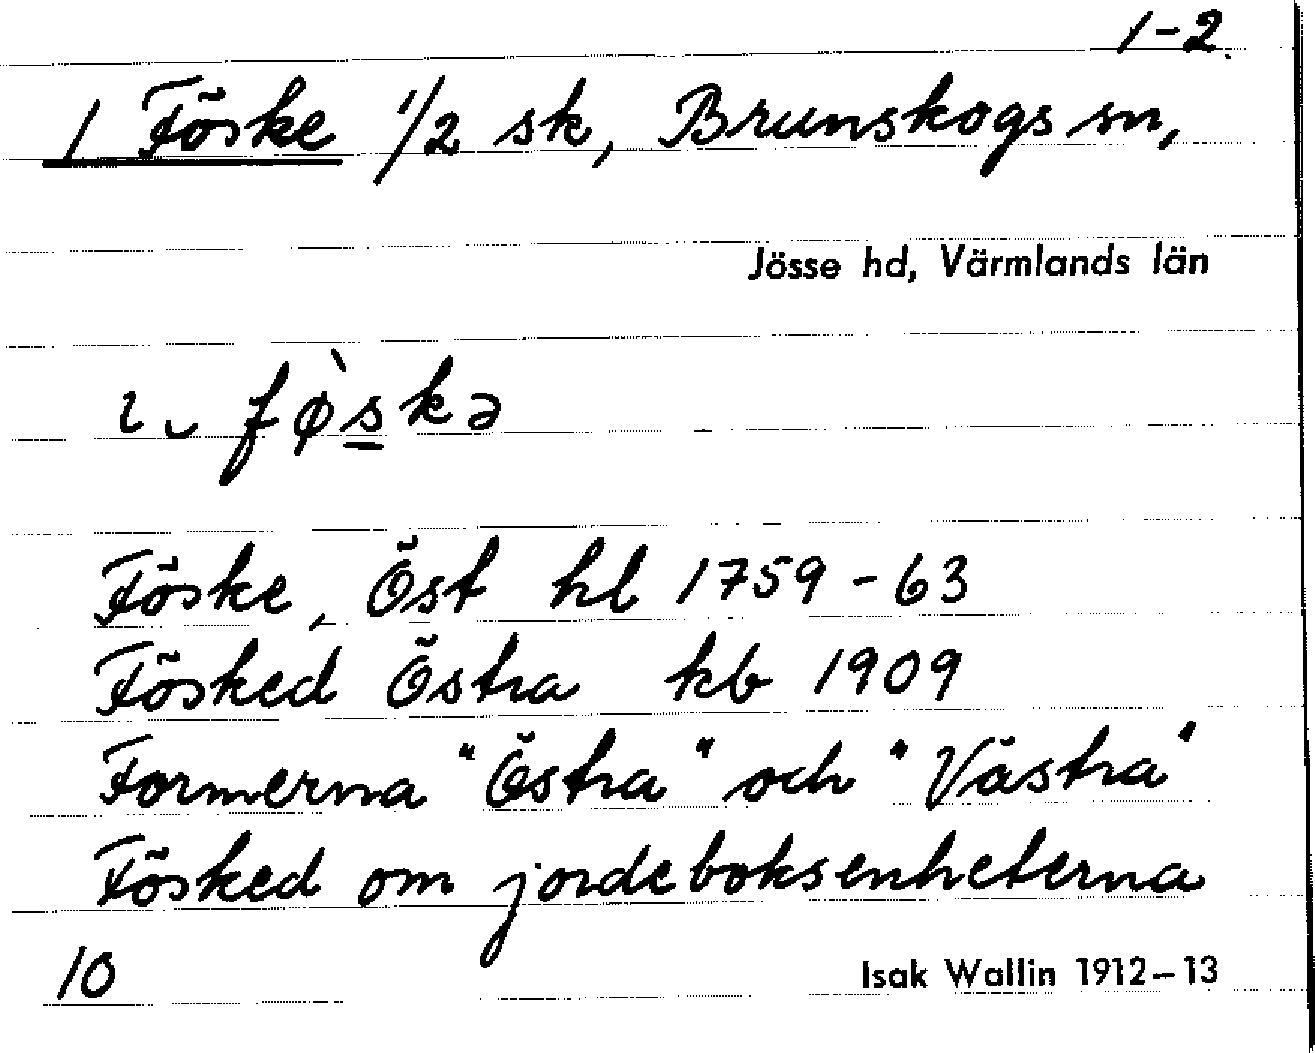 1-2.
1 Föske 1/2 sk, Brunskogs sn,
Jösse hd, Värmlands län
ɩ ᴗ fø̀skə
Föske, Öst hl 1759-63
Fösked Östra kb 1909
Formerna "Östra" och "Västra"
Fösked om jordeboksenheterna
10
Isak Wallin 1912–13